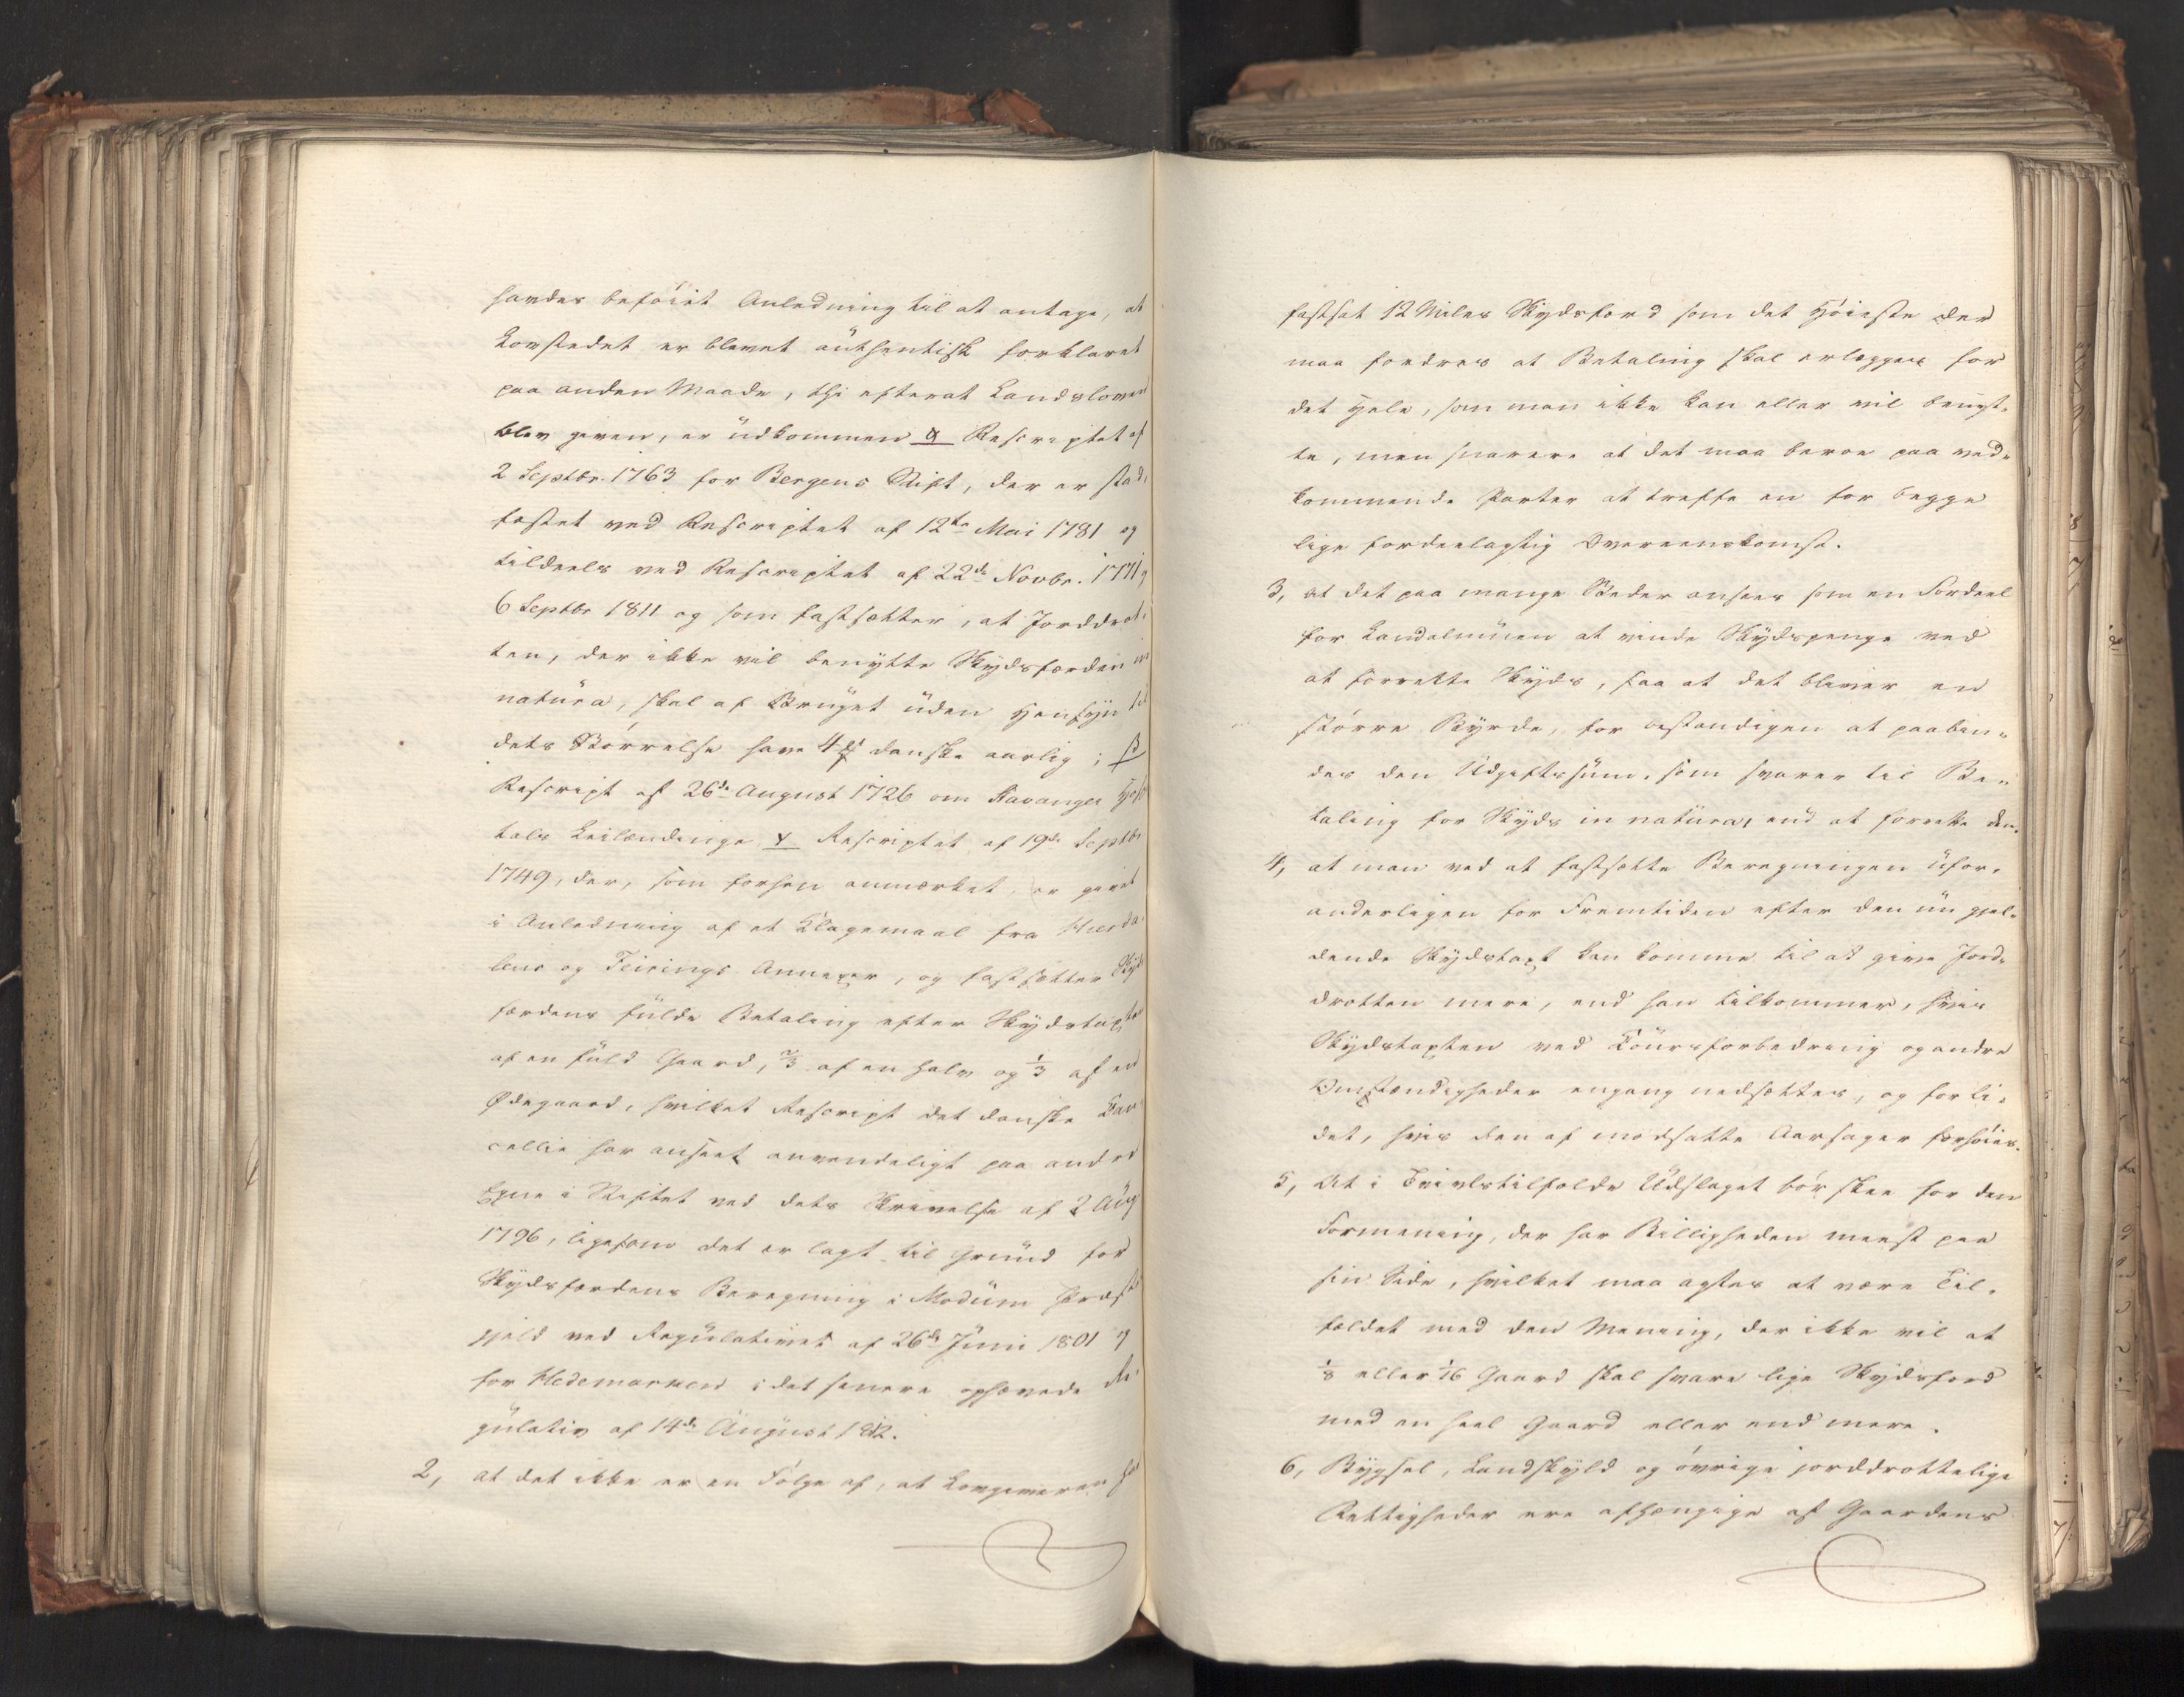 handes beføiet Anledning til at antage, at
Lovstedet er blevet authentisk forklaret
paa anden Maade, thi efterat Landsloven
blev given, er udkommen α Rescriptet af
2 Septbr. 1763 for Bergens Stift, der er stad-
fæstet ved Rescriptet af 12te Mai 1781 og
tildeels ved Rescriptet af 22de Novbr. 1771 og
6 Septbr 1811 og som fastsætter, at Jorddrot-
ten, der ikke vil benytte Skydsfærden in
natura, skal af Bruget uden Hensyn til
dets Størrelse have 4 danske aarlig; β
Rescript af 26de August 1726 om Stavanger Hospi
tals Leilændinge γ Rescriptet af 19de Septbr
1749, der, som forhen anmærket, er givet
i Anledning af et Klagemaal fra Hurda-
lens og Feirings Annexer, og fastsætter Skyds
færdens fulde Betaling efter Skydstaxten
af en fuld Gaard, 2/3 af en halv og 1/3 af en
Ødegaard, hvilket Rescript det danske Can-
cellie har anseet anvendeligt paa andre
Egne i Stiftet ved dets Skrivelse af 2 Aug
1796, ligesom det er lagt til Grund for
Skydsfærdens Beregning i Modum Præste
gjeld ved Regulativet af 26de Juni 1801 og
for Hedemarken i det senere ophævede Re-
gulativ af 14de August 1812.
2, at det ikke er en Følge af, at Lovgiveren har
fastsat 12 Miles Skydsfærd som det Høieste der
maa fordres at Betaling skal erlægges for
det Hele, som man ikke kan eller vil benyt-
te, men snarere at det maa beroe paa ved-
kommende Parter at treffe en for begge
lige fordeelagtig Overeenskomst.
3, at det paa mange Steder ansees som en Fordeel
for Landalmuen at vinde Skydspenge ved
at forrette Skyds, saa at det bliver en
større Byrde, for bestandigen at paabin-
des den Udgiftssum, som svarer til Be-
taling for Skyds in natura, end at forrette den.
4, at man ved at fastsætte Beregningen ufor-
anderligen for Fremtiden efter den nu gjel-
dende Skydstaxt kan komme til at give Jord-
drotten mere, end han tilkommer, hvis
Skydstaxten ved Coursforbedring og andre
Omstændigheder engang nedsættes, og for li-
det, hvis den af modsatte Aarsager forhøies.
5, At i Tvivlstilfælde Udslaget bør skee for den
Formening, der har Billigheden meest paa
sin Side, hvilket maa agtes at være Til-
fældet med den Mening, der ikke vil at
1/8 eller 1/16 Gaard skal svare lige Skydsfærd
med en heel Gaard eller end mere.
6, Bygsel, Landskyld og øvrige jorddrottelige
Rettigheder ere afhængige af Gaardens